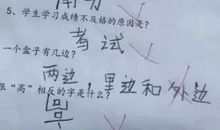 5、学生学习成绩不及格的原因是?
考试
一个盒子有几边?
两边，里边和外边
跟"高"相反的字是什么?